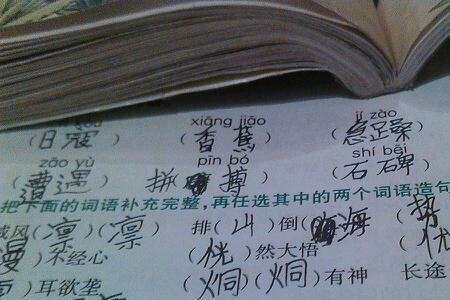 xiāng jiāo jí zào
(日寇) (香蕉) (急躁)
zāo yù pīn bó shí bēi
(遭遇) 拼搏 (石碑)
把下面的词语补充完整,再任选其中的两个词语造句
威风(凛)(凛) 排(山)倒(海 (
漫)不经心 (恍)然大悟 (
)耳欲聋 (炯)(炯)有神 长途